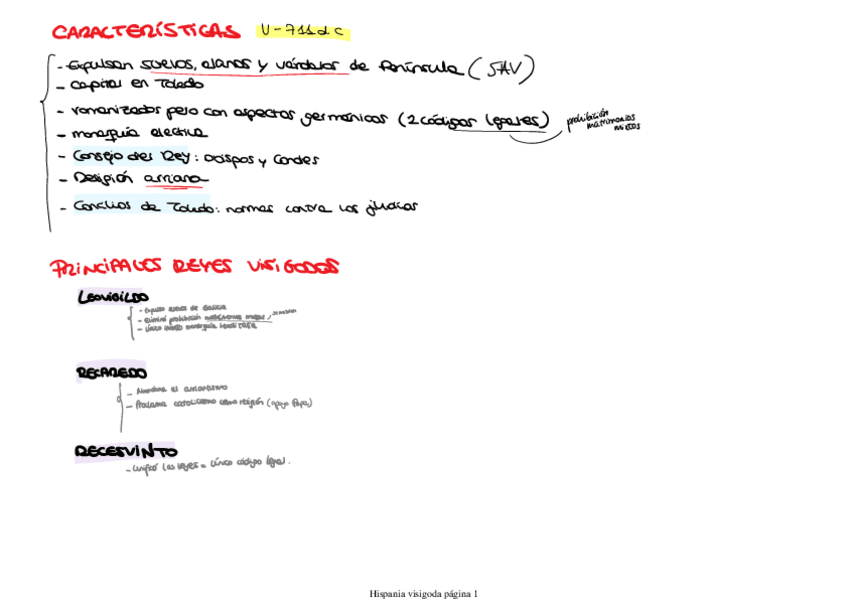 CARACTERÍSTICAS V-711 d C
- Expulsan suevos, alanos y vándalos de Península (SAV)
- Capital en Toledo
- romanizados pero con aspectos germánicos (2 códigos legales) prohibición matrimonios mixtos
- monarquía electiva
- Consejo del Rey: obispos y condes
- Religión arriana
- Concilios de Toledo: normas contra los judíos
PRINCIPALES REYES VISIGODOS
LEOVIGILDO
- Expulsa suevos de Galicia
- Eliminó prohibición matrimonios mixtos,
- Único intento monarquía hereditaria
RECAREDO
- Abandona el arrianismo
- Proclama catolicismo como religión (apoyo Papa)
RECESVINTO
- unificó las leyes = único código legal.
Hispania visigoda página 1